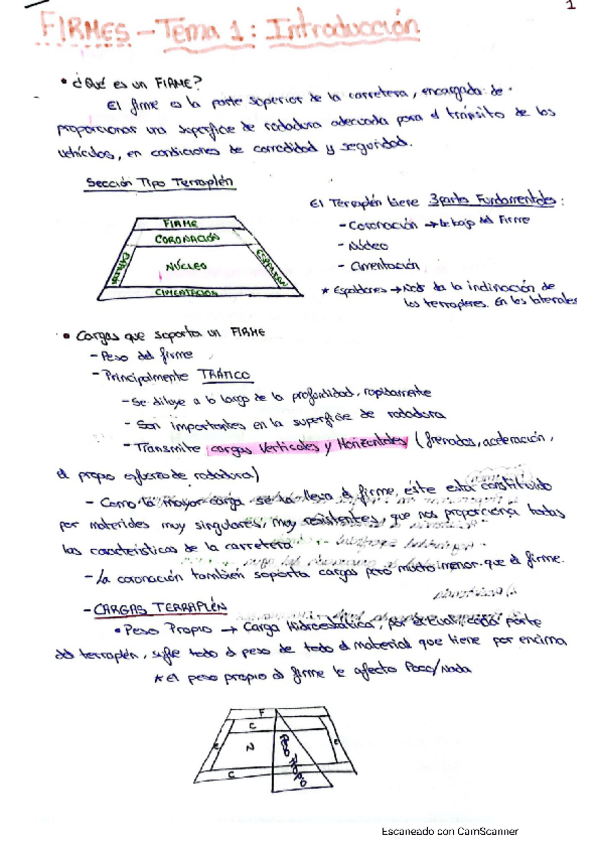 1
FIRMES - Tema 1: Introducción
• ¿Qué es un FIRME?
El firme es la parte superior de la carretera, encargada de
proporcionar una superficie de rodadura adecuada para el tránsito de los
vehículos, en condiciones de comodidad y seguridad.
Sección Tipo Terraplén
El Terraplén tiene 3 partes Fundamentales:
- Coronación → debajo del Firme
- Núcleo
- Cimentación
* Espaldones → Nos da la inclinación de
los terraplenes. En los laterales
FIRME
CORONACIÓN
NÚCLEO
CIMENTACIÓN
ESPALDÓN
• Cargas que soporta un FIRME
- Peso del firme
- Principalmente TRÁFICO
- Se diluye a lo largo de la profundidad, rapidamente
- Son importantes en la superficie de rodadura
- Transmite cargas Verticales y Horizontales (frenados, aceleración,
el propio esfuerzo de rodadura)
- Como la mayor carga se la lleva el firme, este esta constituido
por materiales muy singulares, muy resistentes, que nos proporciona todas
las caracteristicas de la carretera
- La coronación también soporta cargas pero mucho menor que el firme.
- CARGAS TERRAPLÉN
• Peso Propio → Carga Hidroestática, por el cual, cada parte
del terraplén, sufre todo el peso de todo el material que tiene por encima
* El peso propio al firme le afecta Poco/Nada
F
C
N
E
E
C
PESO PROPIO
Escaneado con CamScanner